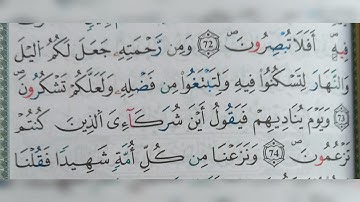 فِيهِ أَفَلَا تُبْصِرُونَ 72 وَمِن رَّحْمَتِهِ جَعَلَ لَكُمُ الَيْلَ
وَالنَّهَارَ لِتَسْكُنُوا فِيهِ وَلِتَبْتَغُوا مِن فَضْلِهِ وَلَعَلَّكُمْ تَشْكُرُونَ
73 وَيَوْمَ يُنَادِيهِمْ فَيَقُولُ أَيْنَ شُرَكَآءِىَ الَذِينَ كُنتُمْ
تَزْعُمُونَ 74 وَنَزَعْنَا مِن كُلِّ أُمَّةٍ شَهِيدًا فَقُلْنَا